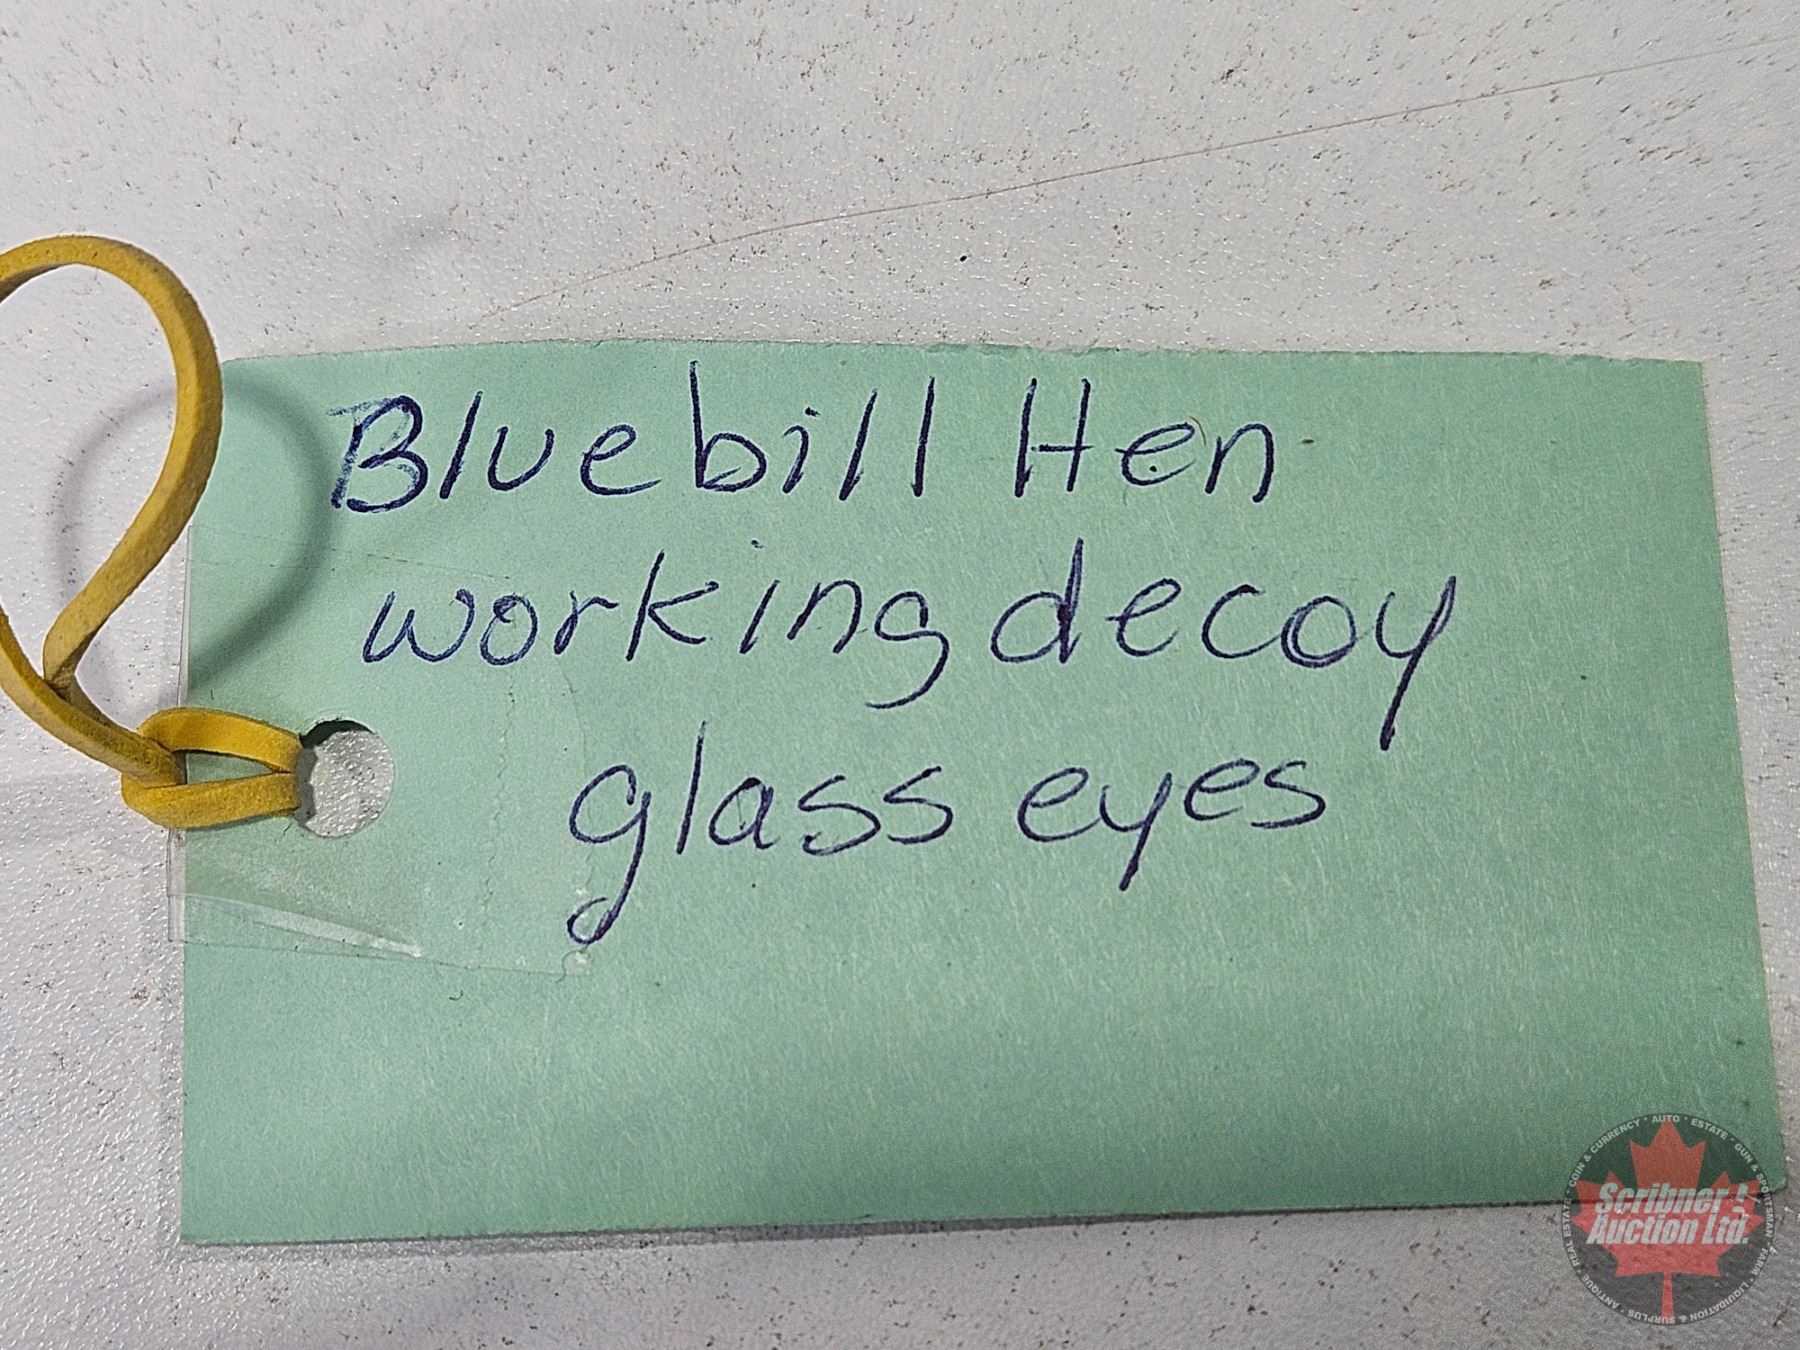 Bluebill Hen
working decoy
glass eyes
Scribner
Auction Ltd.
REAL ESTATE · COIN & CURRENCY · AUTO · ESTATE · GUN & SPORTSMAN · FARM · LIQUIDATION & SURPLUS · ANTIQUE